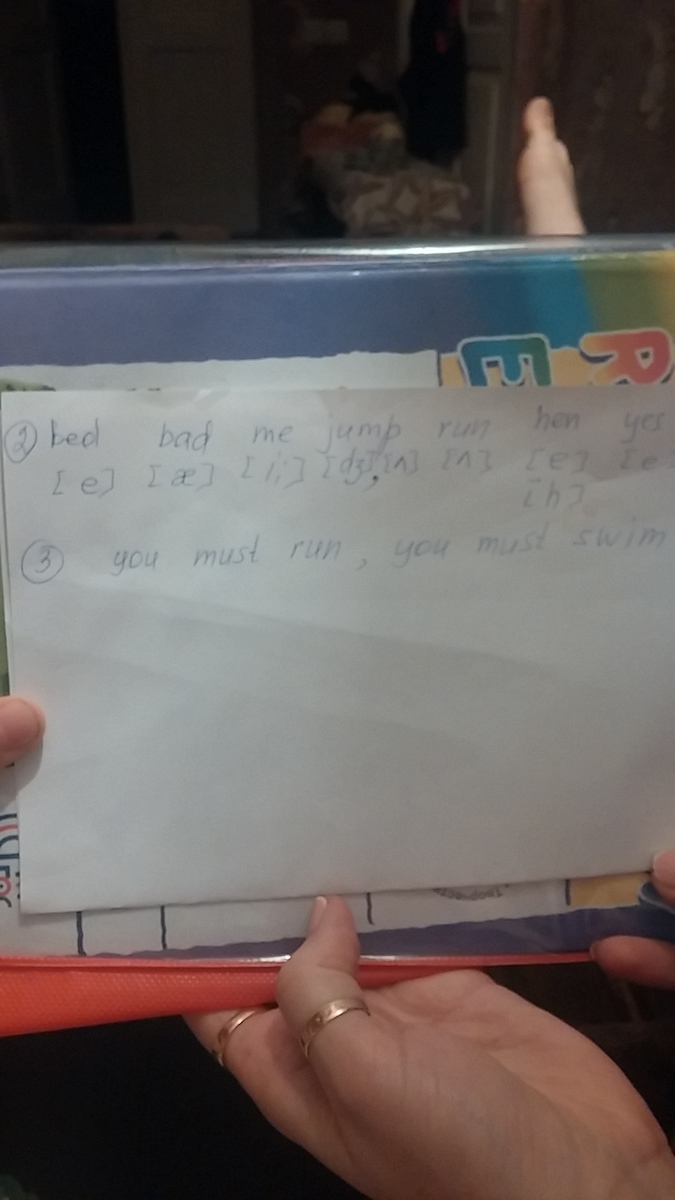 R
E
② bed bad me jump run hen yes
[e] [æ] [i:] [dʒ],[ʌ] [ʌ] [e] [e]
[h]
③ you must run, you must swim